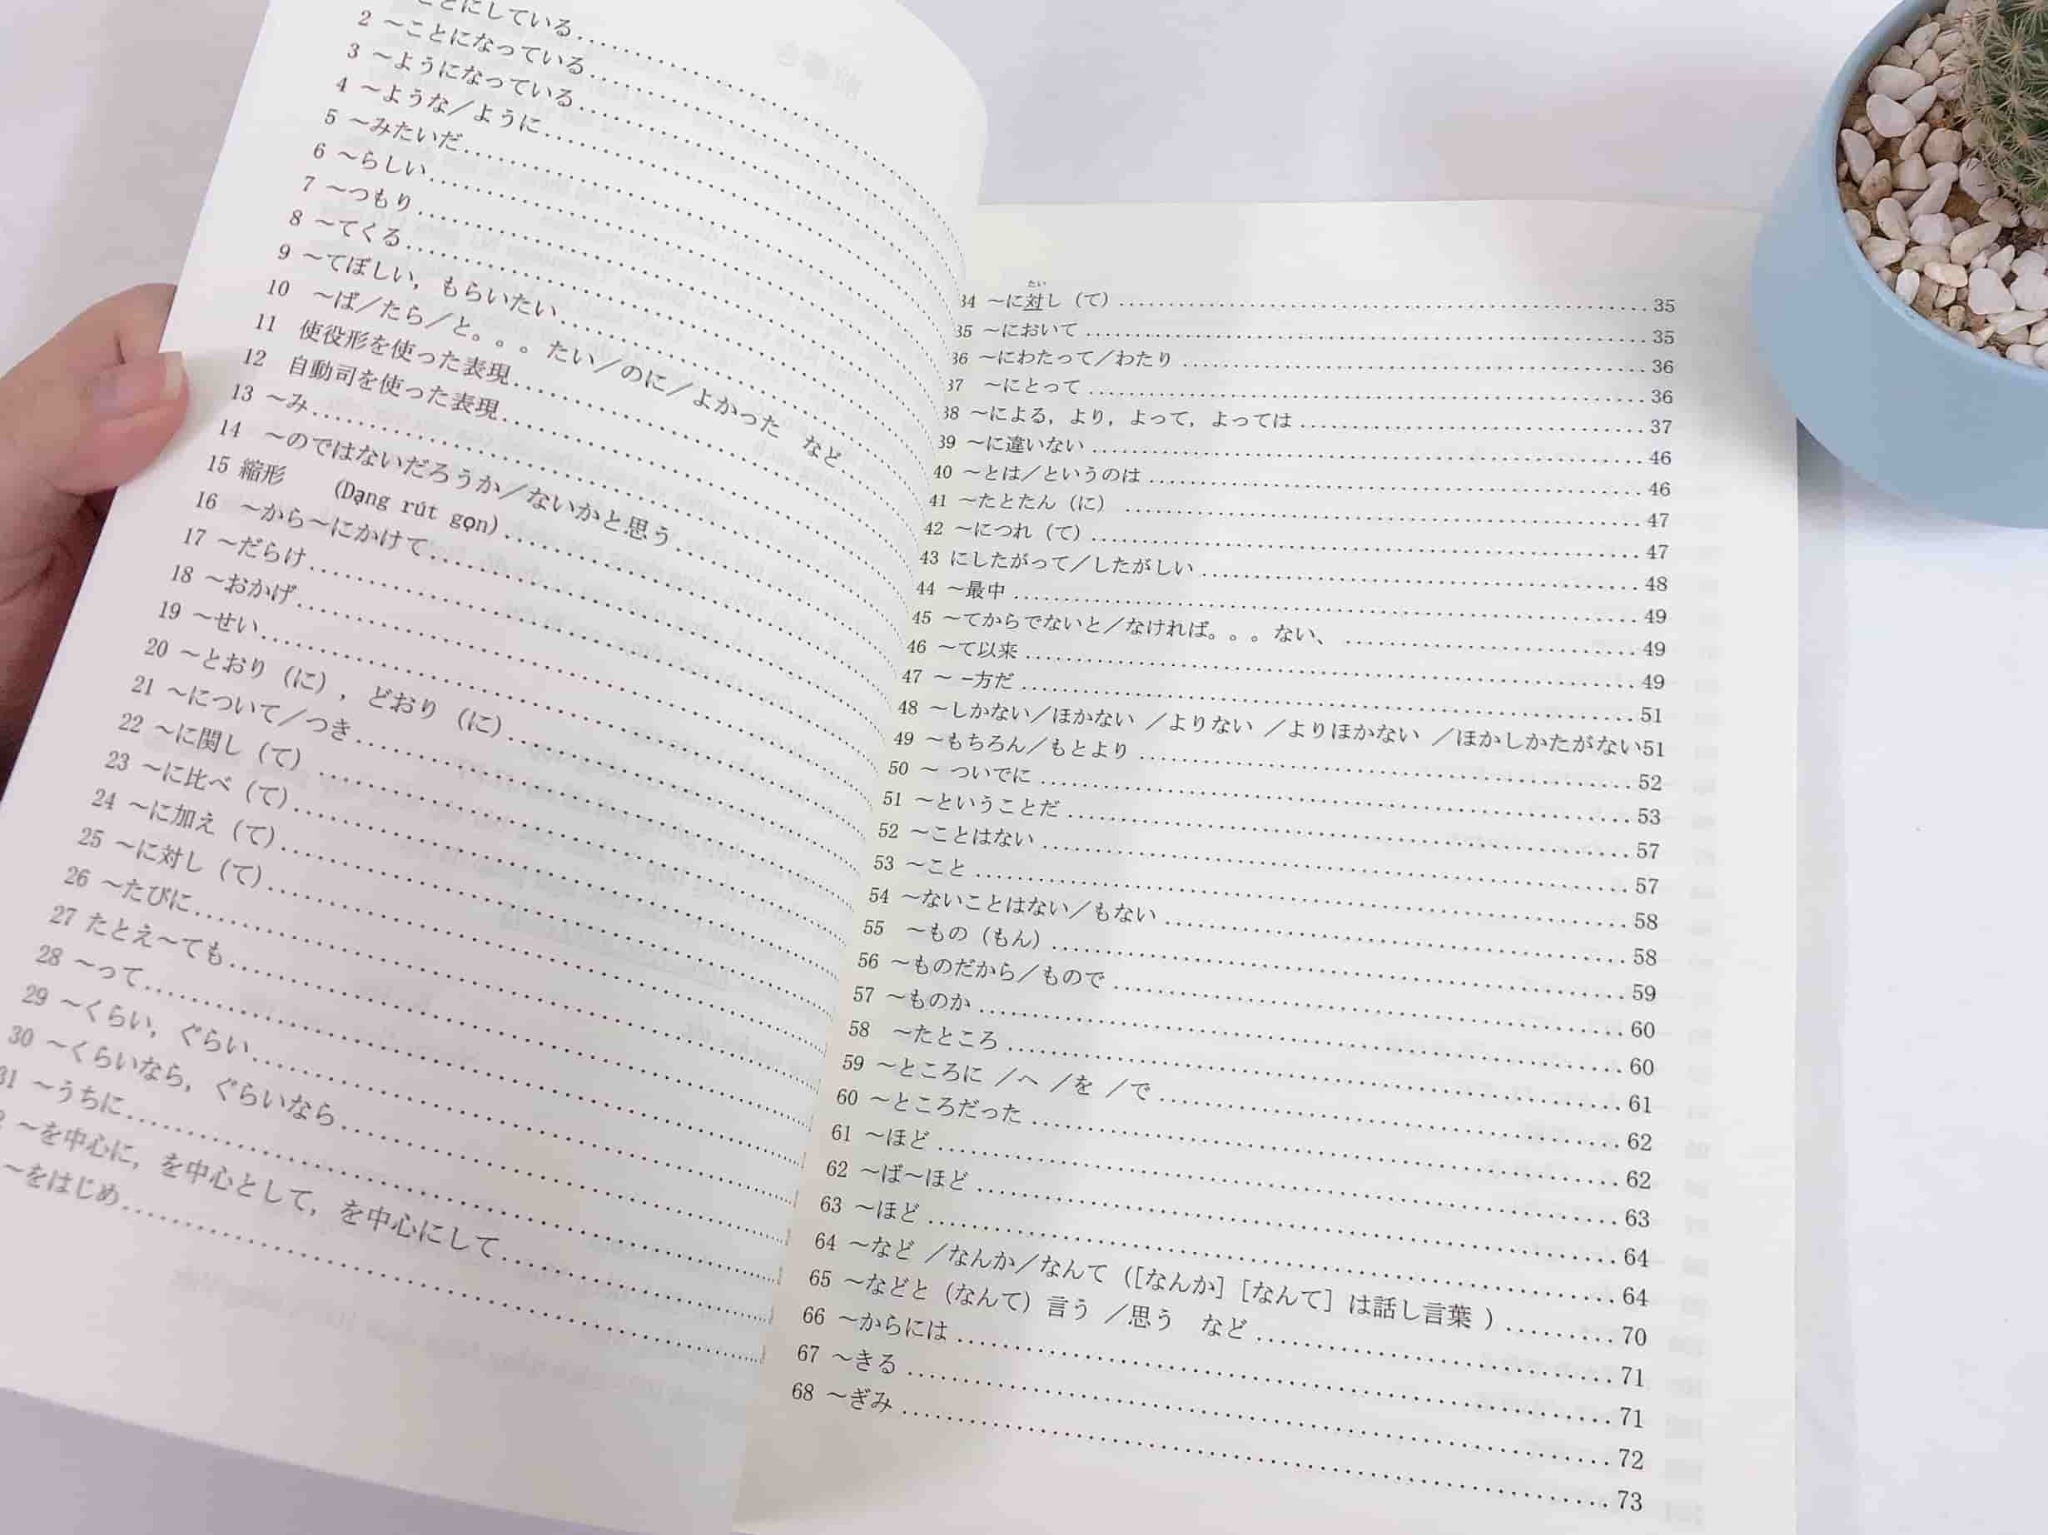 ことにしている..........
2 ～ことになっている..........
3 ～ようになっている..........
4 ～ような／ように..........
5 ～みたいだ..........
6 ～らしい..........
7 ～つもり..........
8 ～てくる..........
9 ～てほしい，もらいたい..........
10 ～ば／たら／と。。。たい／のに／よかった など
11 使役形を使った表現..........
12 自動司を使った表現..........
13 ～み..........
14 ～のではないだろうか／ないかと思う..........
15 縮形 （Dạng rút gọn）..........
16 ～から～にかけて..........
17 ～だらけ..........
18 ～おかげ..........
19 ～せい..........
20 ～とおり（に），どおり（に）..........
21 ～について／つき..........
22 ～に関し（て）..........
23 ～に比べ（て）..........
24 ～に加え（て）..........
25 ～に対し（て）..........
26 ～たびに..........
27 たとえ～ても..........
28 ～って..........
29 ～くらい，ぐらい..........
30 ～くらいなら，ぐらいなら..........
31 ～うちに..........
～を中心に，を中心として，を中心にして..........
～をはじめ..........
たい
34 ～に対し（て）..........35
35 ～において..........35
36 ～にわたって／わたり..........36
37 ～にとって..........36
38 ～による，より，よって，よっては..........37
39 ～に違いない..........46
40 ～とは／というのは..........46
41 ～たとたん（に）..........47
42 ～につれ（て）..........47
43 にしたがって／したがしい..........48
44 ～最中..........49
45 ～てからでないと／なければ。。。ない、..........49
46 ～て以来..........49
47 ～ 一方だ..........51
48 ～しかない／ほかない ／よりない ／よりほかない ／ほかしかたがない51
49 ～もちろん／もとより..........52
50 ～ ついでに..........53
51 ～ということだ..........57
52 ～ことはない..........57
53 ～こと..........58
54 ～ないことはない／もない..........58
55 ～もの（もん）..........59
56 ～ものだから／もので..........60
57 ～ものか..........60
58 ～たところ..........61
59 ～ところに ／へ ／を ／で..........62
60 ～ところだった..........62
61 ～ほど..........63
62 ～ば～ほど..........64
63 ～ほど..........64
64 ～など ／なんか／なんて（[なんか] [なんて] は話し言葉 ）..........70
65 ～などと（なんて）言う ／思う など..........71
66 ～からには..........71
67 ～きる..........72
68 ～ぎみ..........73